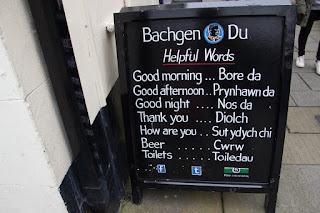 Bachgen Du
Helpful Words
Good morning ... Bore da
Good afternoon .. Prynhawn da
Good night .... Nos da
Thank you .... Diolch
How are you .. Sut ydych chi
Beer ..... Cwrw
Toilets .... Toiledau
f t